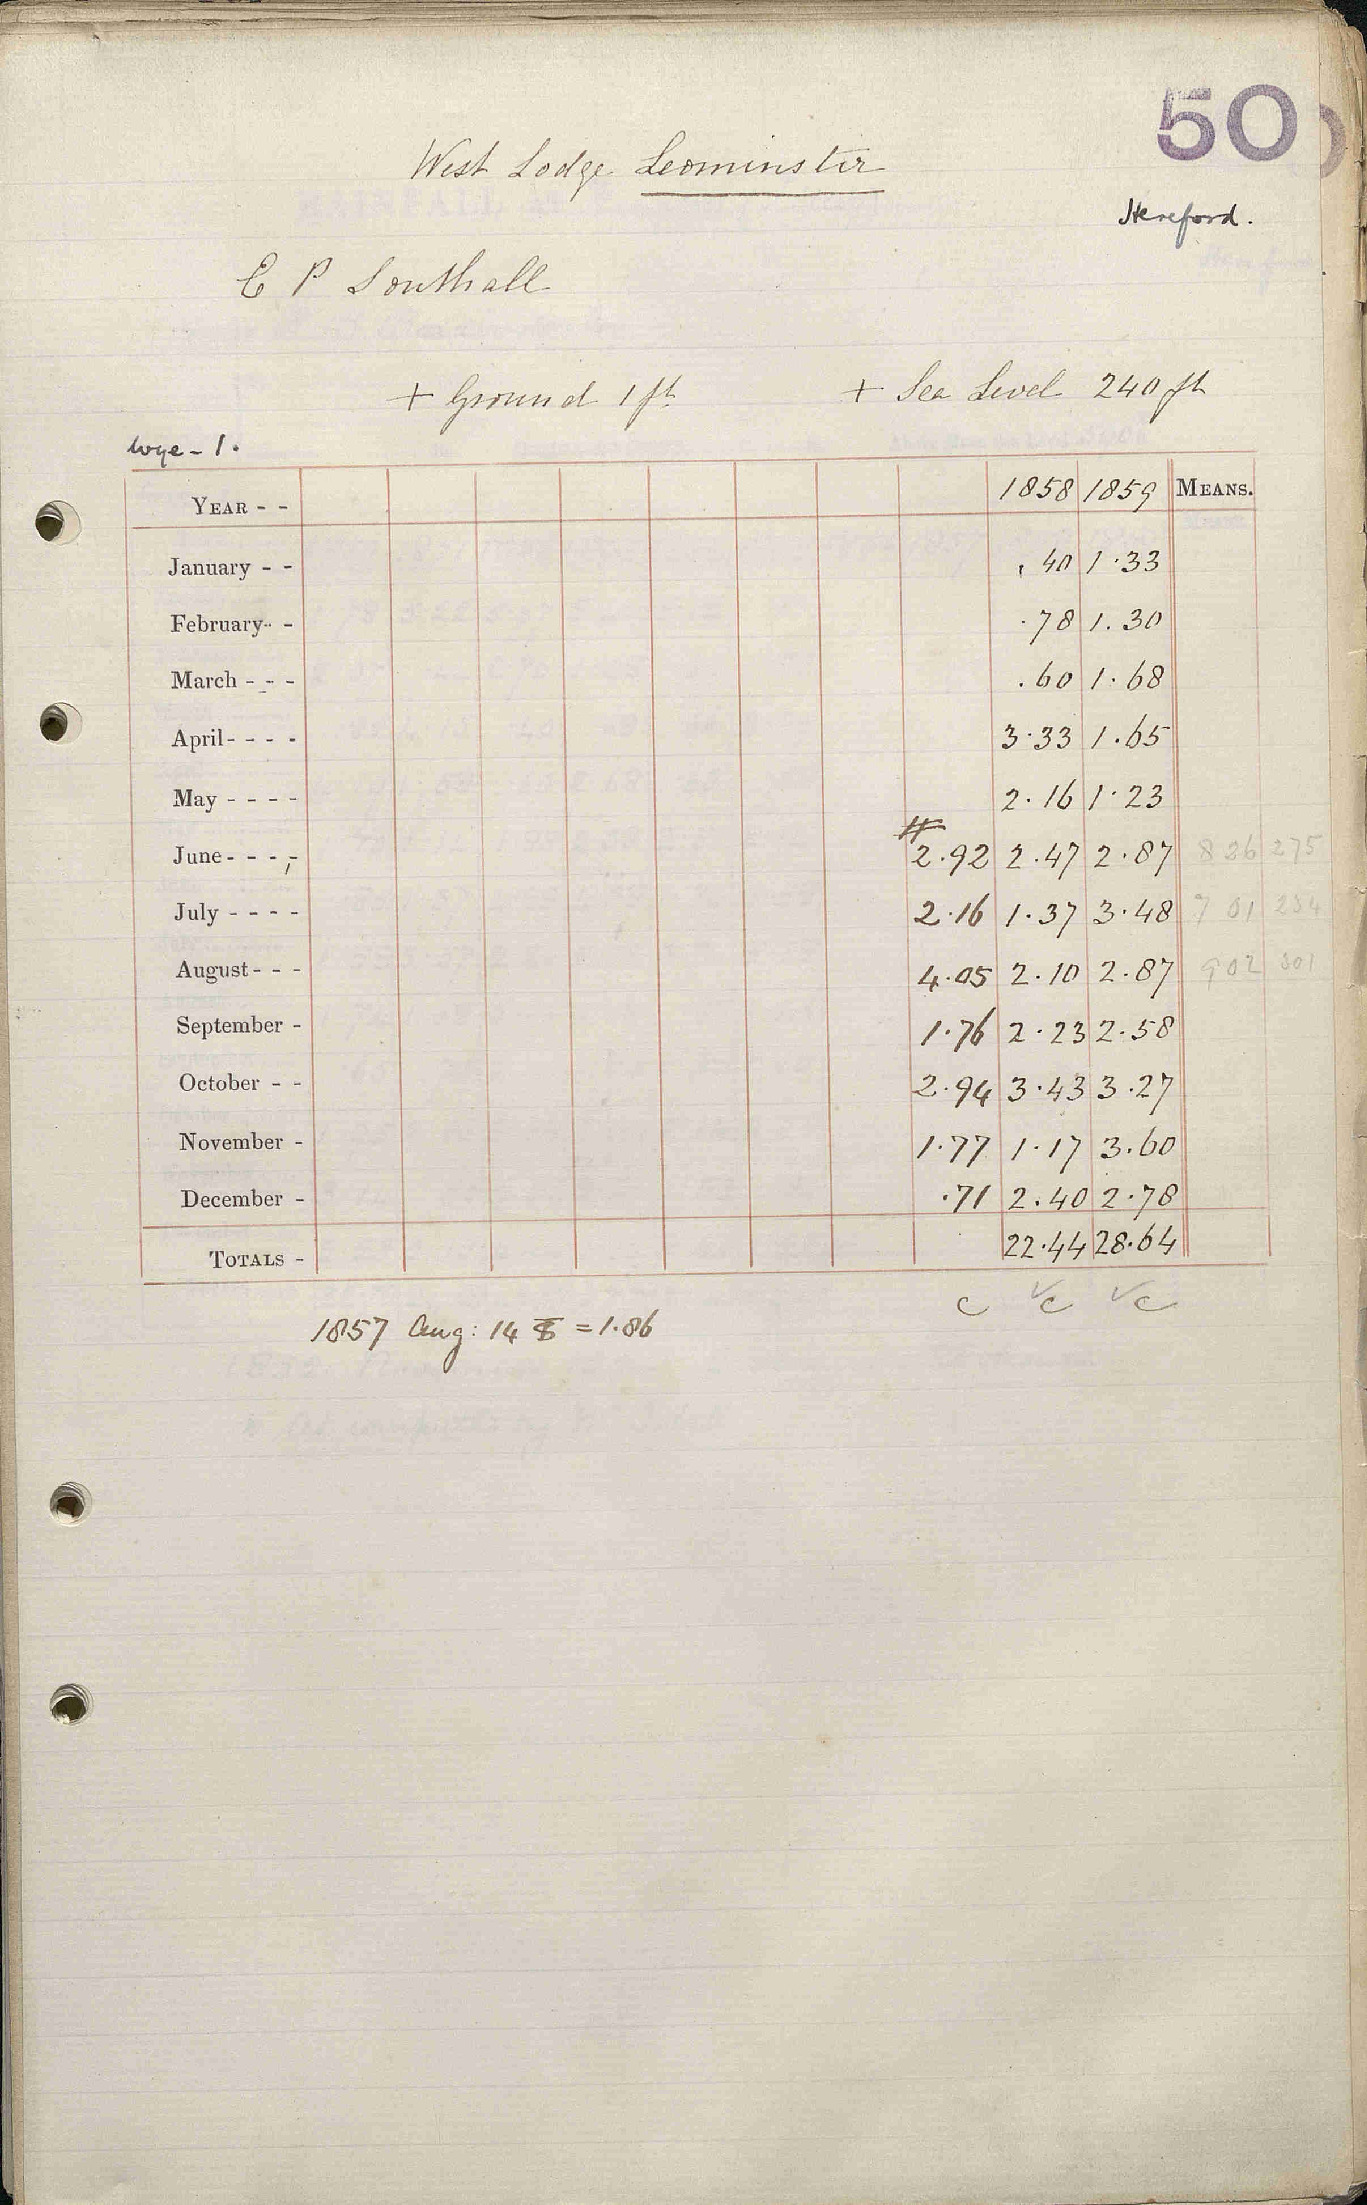 50
West Lodge Leominster
Hereford.
E P Southall
+ Ground 1 ft + Sea Level 240 ft
Wye - 1.
YEAR - - 1858 1859 MEANS.
January - - .40 1.33
February - - .78 1.30
March - - - .60 1.68
April - - - - 3.33 1.65
May - - - - 2.16 1.23
June - - - - 2.92 2.47 2.87 8 26 275
July - - - - 2.16 1.37 3.48 7 01 234
August - - - 4.05 2.10 2.87 9 02 301
September - 1.76 2.23 2.58
October - - 2.94 3.43 3.27
November - 1.77 1.17 3.60
December - .71 2.40 2.78
TOTALS - 22.44 28.64
C √C √C
1857 Aug: 14 = 1.86